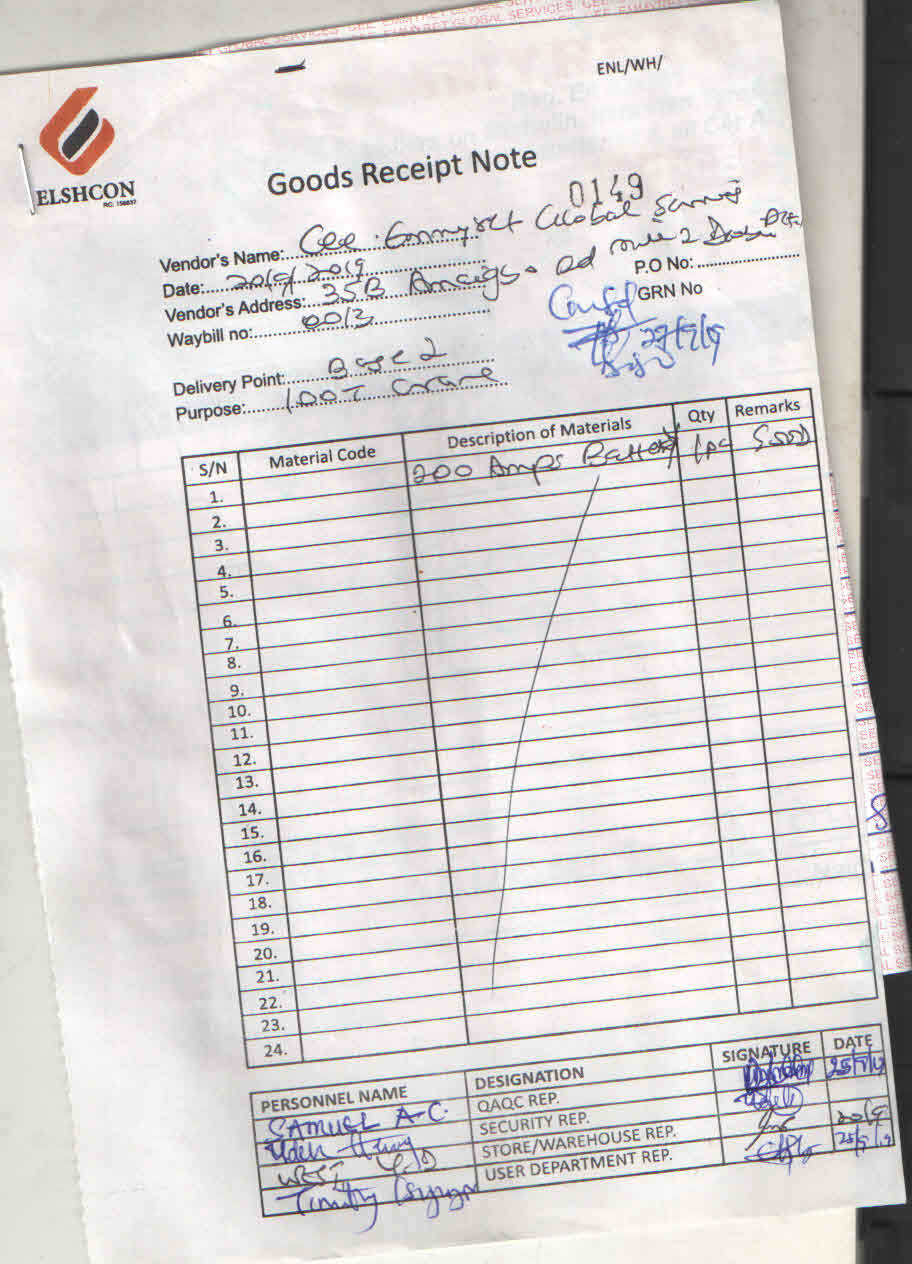 ENL/WH/
ELSHCON
RC: 156837
Goods Receipt Note
0149
Vendor's Name: Cee Emmyret Global Services
Date: 20/9/2019
P.O No:
Vendor's Address: 35B Rd mile 2
GRN No
Waybill no: 0013
Delivery Point: Base 2
Purpose: 100T Crane
S/N Material Code Description of Materials Qty Remarks
1. 200 Amps Battery 1pc Good
2.
3.
4.
5.
6.
7.
8.
9.
10.
11.
12.
13.
14.
15.
16.
17.
18.
19.
20.
21.
22.
23.
24.
PERSONNEL NAME DESIGNATION SIGNATURE DATE
SAMUEL A-C. QAQC REP. 25/9/19
Udeh SECURITY REP.
WEST STORE/WAREHOUSE REP. 20/9
Timothy USER DEPARTMENT REP. 25/9/19